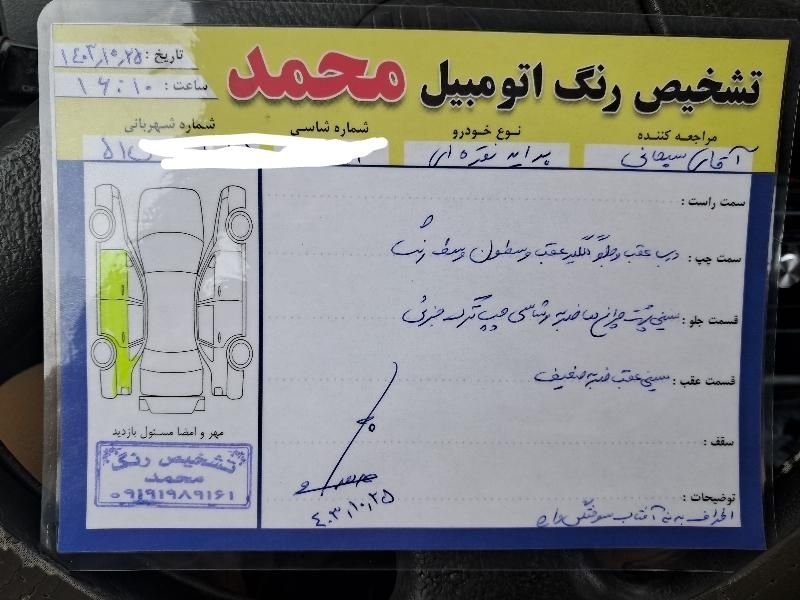 تشخیص رنگ اتومبیل محمد
تاریخ : ۱۴۰۳٫۱۰٫۲۵
ساعت : ۱۶:۱۰
مراجعه کننده
آقای سبحانی
نوع خودرو
پراید نقره ای
شماره شاسی
شماره شهربانی
سمت راست :
سمت چپ : درب عقب و جلو گلگیر عقب و ستون وسط رنگ
قسمت جلو : سینی پشت چراغ ها ضربه و شاسی چپ ترک جزئی
قسمت عقب : سینی عقب ضربه ضعیف
سقف :
توضیحات :
اطراف بدنه آفتاب سوختگی دارد
۴۰۳٫۱۰٫۲۵
مهر و امضا مسئول بازدید
تشخیص رنگ
محمد
۰۹۱۹۱۹۸۹۱۶۱